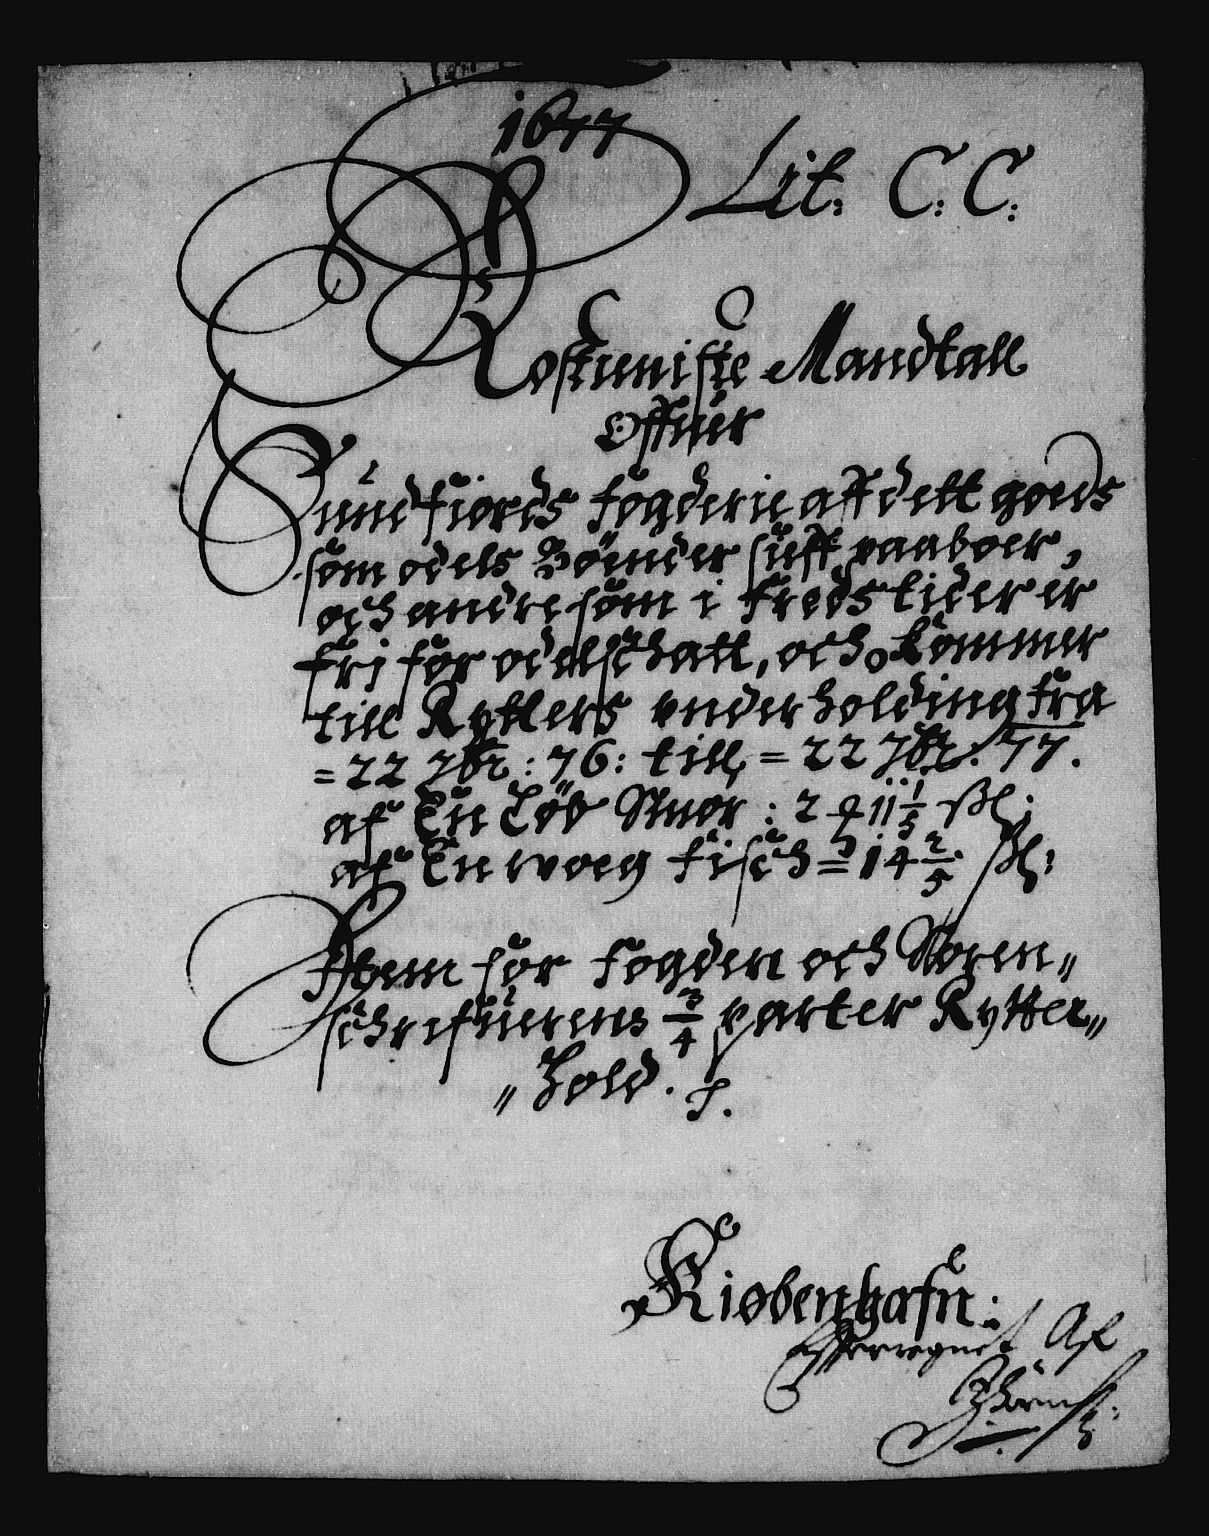 1677
Lit: C: C:
Rostieniste Mandtall
Offuer
Sundfiords fogderie aff dett goeds
som odels Bønder sielff paaboer,
och andre som i freds tider er
fri for odelschatt, och kommer
till Rytters vnderholding fra
= 22 7br: 76: till = 22 7br: 77.
af En Løb Smør : 2 11 1/5 ßl:
af En woeg fisch = 14 2/5 ßl:
Item for fogden och Soren„
schrifuerens 3/4 parter Rytter„
„hold.
Kiøbenhafn:
Efterregnet Af